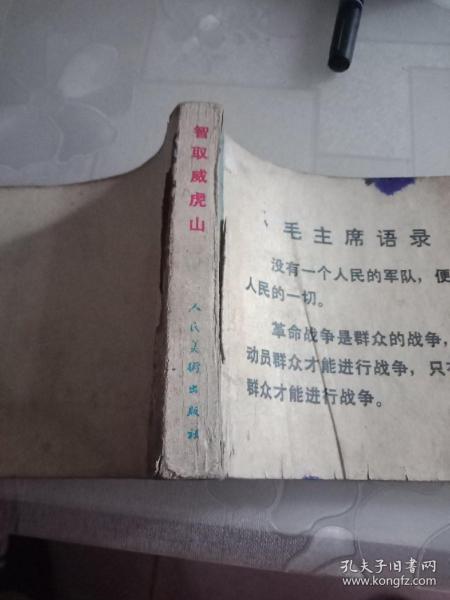 智取威虎山
人民美術出版社
毛主席语录
没有一个人民的军队，便
人民的一切。
革命战争是群众的战争，
动员群众才能进行战争，只有
群众才能进行战争。
孔夫子旧书网
www.kongfz.com